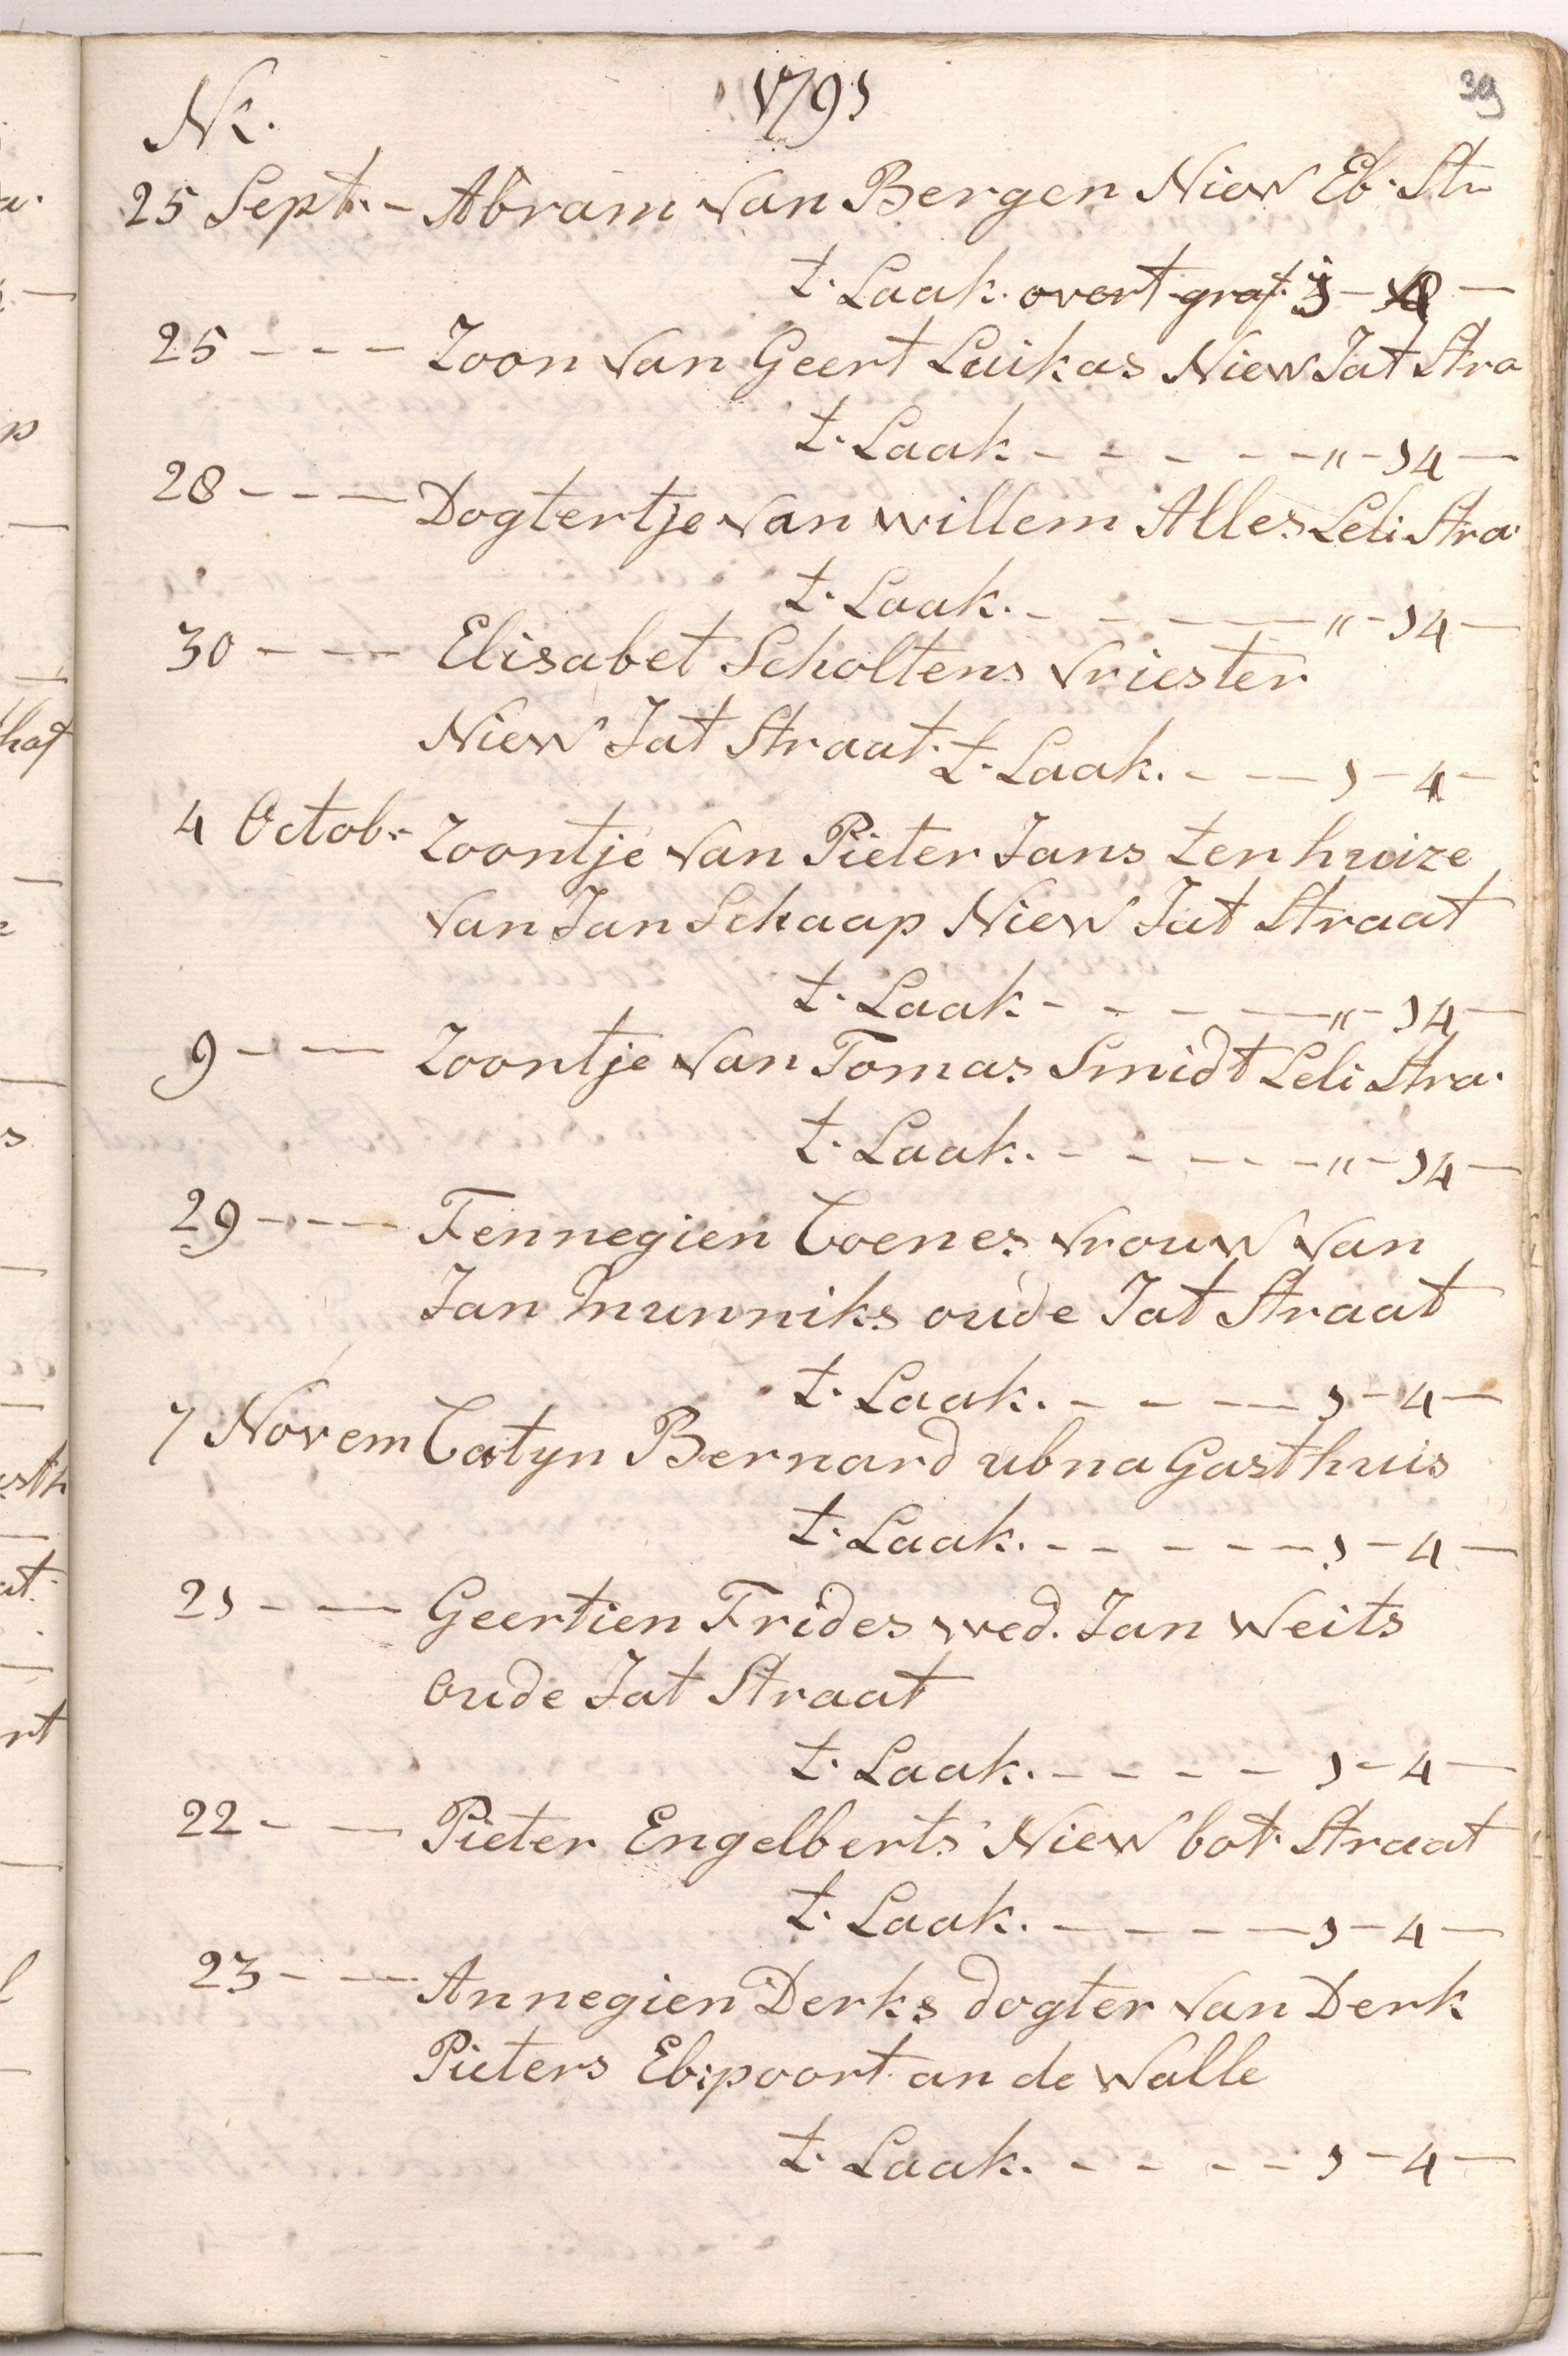 39
Nk. 1791
25 Sept. - Abram van Bergen Niew Eb. Str
t. Laak. overt graf.
25 - - - Zoon van Geert Luikas Niew Jat Stra
t. Laak - - - - - " - 14 -
28 - - - Dogtertje van willem Alles Leli Stra.
t. Laak. - - - - " - 14 -
30 - - - Elisabet Scholtens vriester
Niew Jat Straat. t. Laak. - - - 1 - 4 -
4 Octob. Zoontje van Pieter Jans ten huize
van Jan Schaap Niew Jat Straat
t. Laak - - - - - " - 14 -
9 - - Zoontje van Tomas Smidt Leli Stra.
t. Laak. - - - - - - " - 14 -
29 - - - Fennegien Coenes vrouw van
Jan Munniks oude Jat Straat
t. Laak. - - - - 1 - 4 -
7 Novem Catyn Bernard ubna Gasthuis
t. Laak. - - - - - - 1 - 4 -
21 - - Geertien Frides wed. Jan Weits
oude Jat Straat
t. Laak. - - - - - 1 - 4 -
22 - - Pieter Engelberts Niew bot. Straat
t. Laak. - - - - - 1 - 4 -
23 - - Annegien Derks dogter van Derk
Pieters Eb:poort an de Walle
t. Laak. - - - - - 1 - 4 -